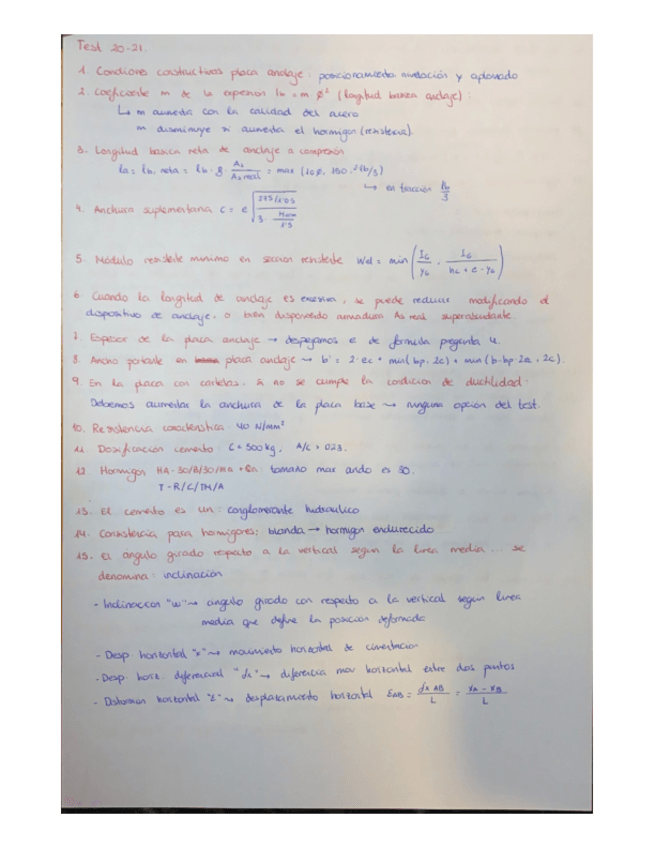 Test 20-21.
1. Condiciones constructivas placa anclaje: posicionamiento, nivelación y aplomado
2. Coeficiente m de la expresion lb = m ø² (longitud basica anclaje):
↳ m aumenta con la calidad del acero
m disminuye si aumenta el hormigon (resistencia).
3. Longitud basica neta de anclaje a compresión
la = lb, neta = lb · β · As/As real = max (10ø, 150, 2lb/3)
↳ en tracción lb/3
4. Anchura suplementaria c = e √
5. Módulo resistente minimo en seccion resistente Wd = min (IG/yG , IG/(hc + e - yG))
6. Cuando la longitud de anclaje es excesiva, se puede reducir modificando el
dispositivo de anclaje, o bien disponiendo armadura As real superabundante.
7. Espesor de la placa anclaje → despejamos e de formula pregunta 4.
8. Ancho portante en placa anclaje → b' = 2·ec + min(bp, 2c) + min(b-bp-2e, 2c).
9. En la placa con cartelas, si no se cumple la condicion de ductilidad:
Debemos aumentar la anchura de la placa base → ninguna opcion del test.
10. Resistencia caracteristica 40 N/mm²
11. Dosificación cemento: C = 500 kg, A/C >
12. Hormigon HA-30/B/30/ + Qa: tamaño max arido es 30.
T-R/C/TM/A
13. El cemento es un: conglomerante hidraulico
14. Consistencia para hormigones: blanda → hormigon endurecido
15. El angulo girado respecto a la vertical segun la linea media ... se
denomina: inclinación
- Inclinaccion "w" → angulo girado con respecto a la vertical segun linea
media que define la posicion deformada
- Desp. horizontal "x" → movimiento horizontal de cimentacion
- Desp. horiz. diferencial "dx" → diferencia mov horizontal entre dos puntos
- Distorsion horizontal "ε" → desplazamiento horizontal εAB = dx AB/L = (xA - xB)/L